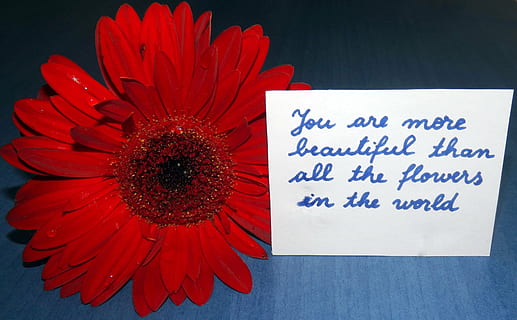 You are more
beautiful than
all the flowers
in the world